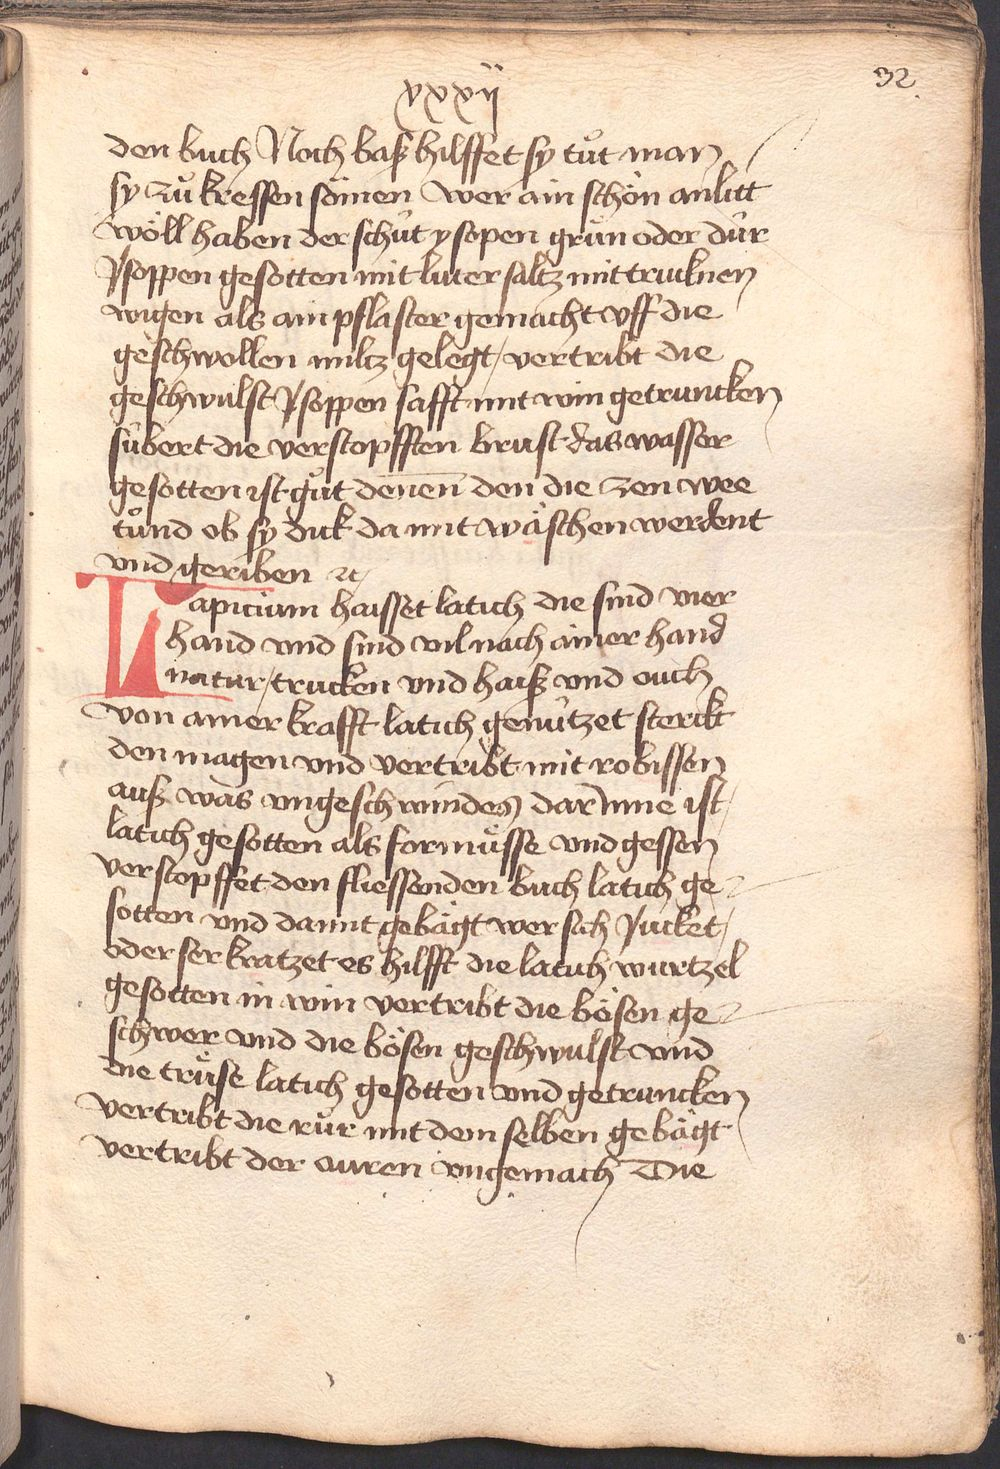 xxxij
32
den buch Noch baß hilffet sy tuͦt man
sy zuͦ kressen sömen wer ain schön anlitt
wöll haben der schüt ysopen gruͤn oder dür
Jsoppen gesotten mit luter saltz mit trucknen
wigen als ain pflaster gemacht vff die
geschwollen miltz gelegt / vertribt die
geschwulst Jsoppen safft mit win getruncken
sübert die verstopfften brust das wasser
gesotten ist guͦt denen den die zen wee
tuͦnd ob sy dick da mit wäschen werdent
vnd geriben ⁊c
Lapicium haisset latich die sind vier
hand vnd sind vil nach ainer hand
natur / trucken vnd haiß vnd ouch
von ainer krafft latich genützet sterckt
den magen vnd vertribt mit robissen
auß was vngeschwindes dar Jnne ist /
latich gesotten als formuͤsse vnd gessen
verstopffet den fliessenden buch latich ge
sotten vnd da mit gebägt wer sich Jucket /
oder ser kratzet es hilfft die latich wurtzel
gesotten in win vertribt die bösen ge
schwer vnd die bösen geschwulst vnd
die truͤse latich gesotten vnd getruncken
vertribt die ruͦr mit dem selben gebägt
vertribt der auren vngemach Die